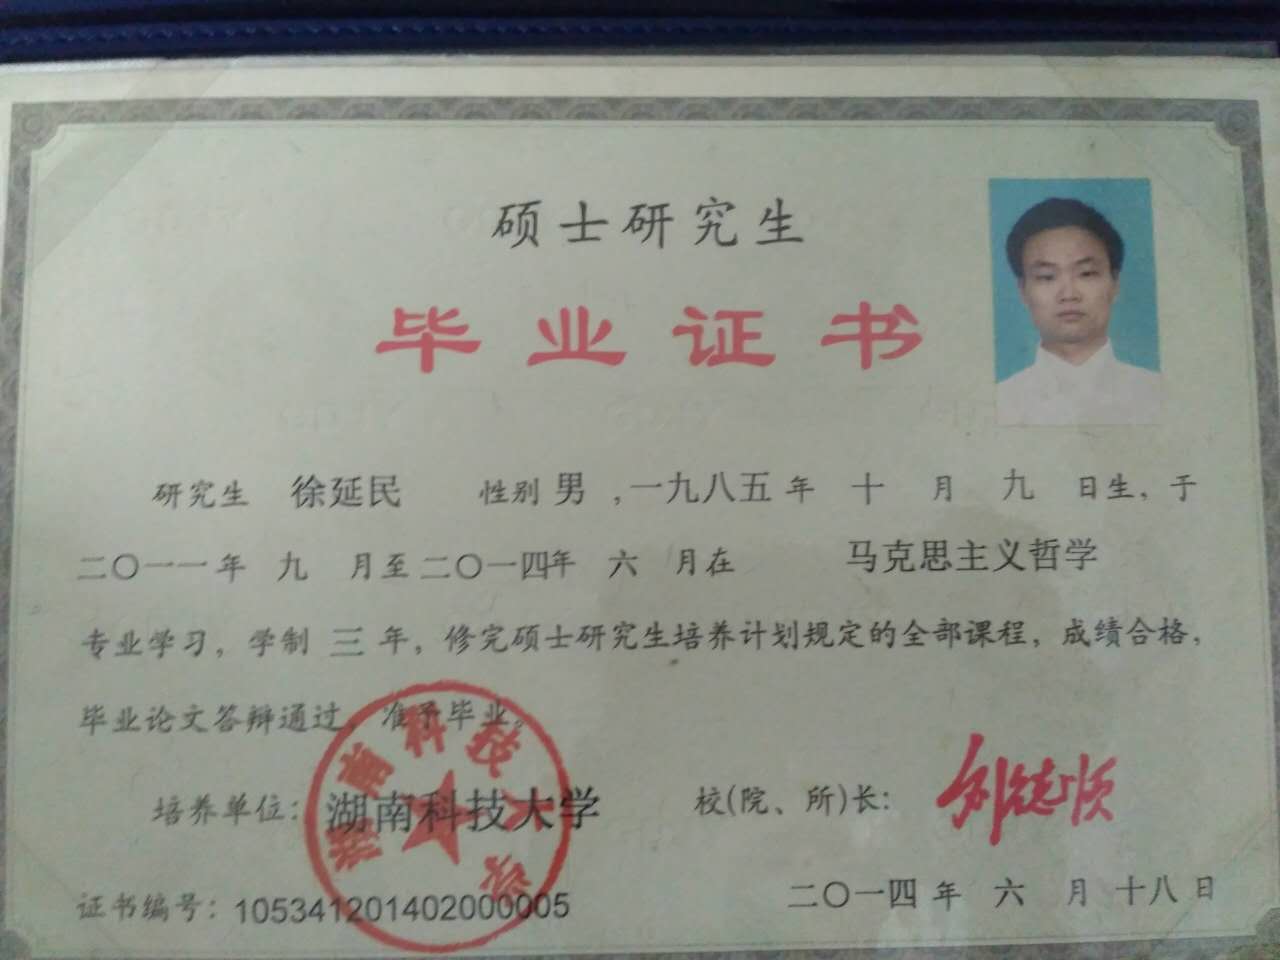 硕士研究生
毕业证书
研究生 徐延民 性别 男 ,一九八五 年 十 月 九 日生，于
二〇一一年 九 月至二〇一四年 六 月在 马克思主义哲学
专业学习，学制 三 年，修完硕士研究生培养计划规定的全部课程，成绩合格，
毕业论文答辩通过，准予毕业。
培养单位：湖南科技大学 校(院、所)长：刘德顺
湖南科技大学
证书编号：105341201402000005 二〇一四 年 六 月 十八 日